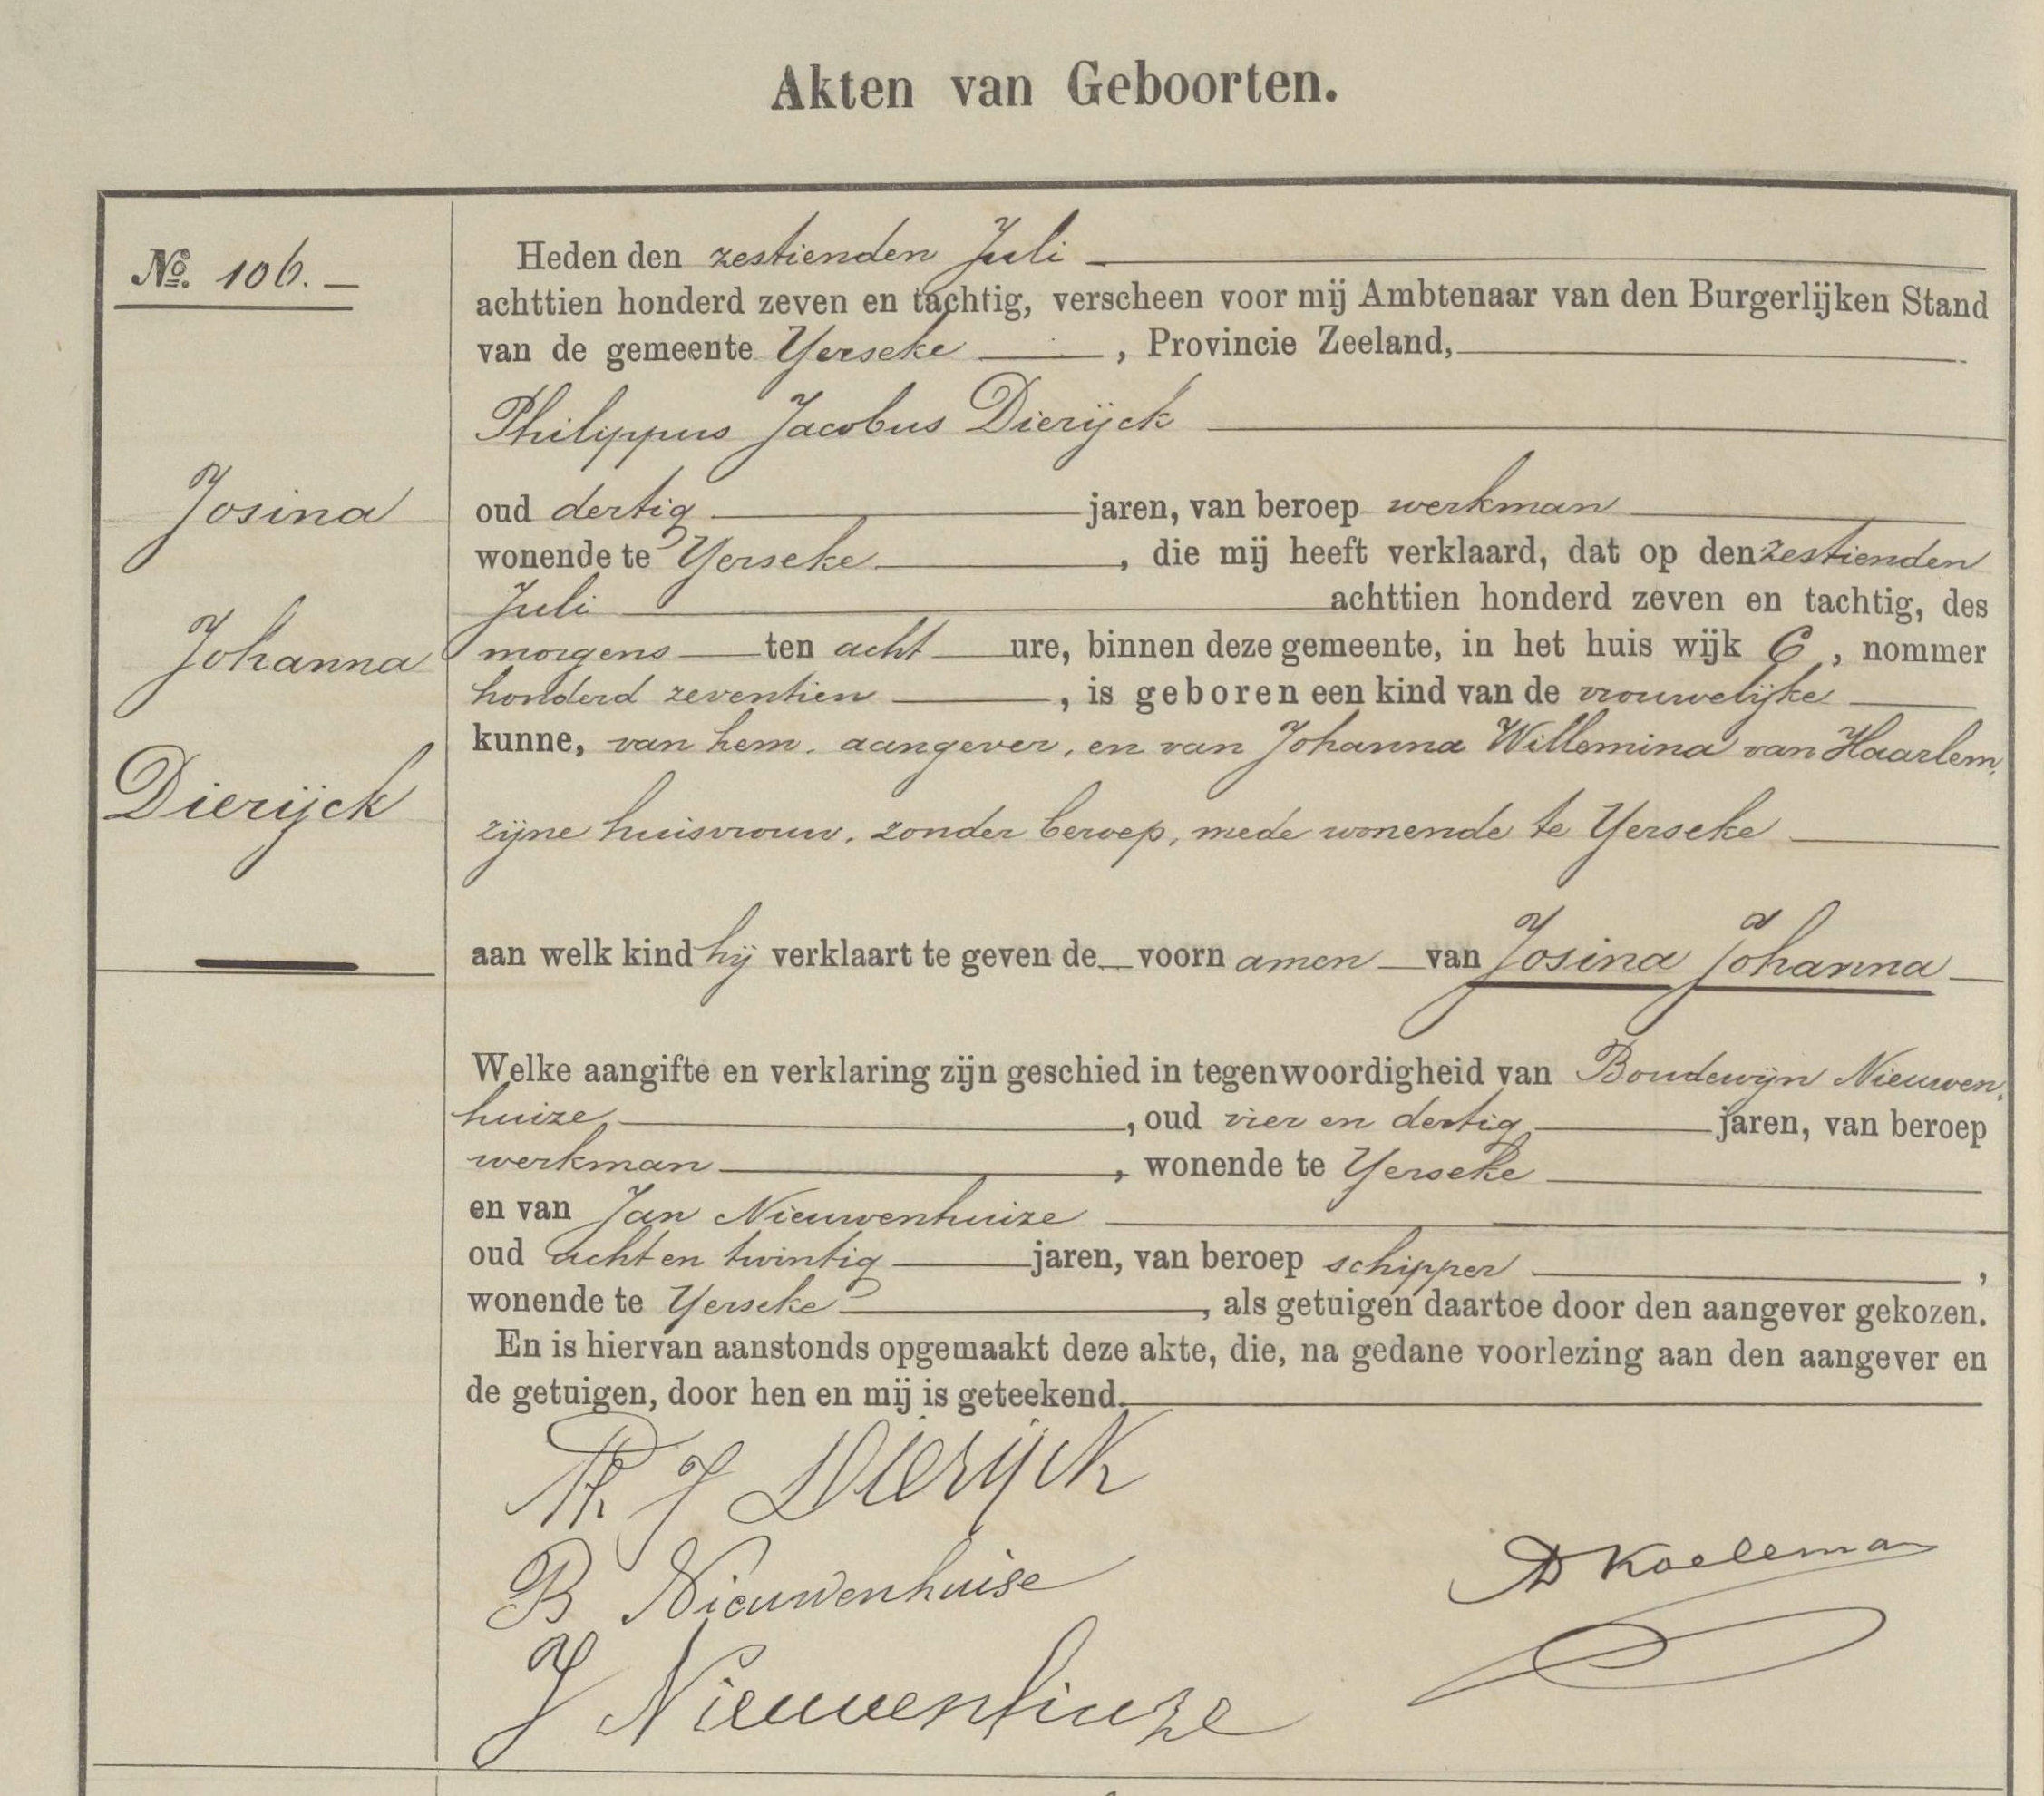 Akten van Geboorten.
No. 106.
Josina
Johanna
Dierijck
Heden den zestienden Juli
achttien honderd zeven en tachtig, verscheen voor mij Ambtenaar van den Burgerlijken Stand
van de gemeente Yerseke, Provincie Zeeland,
Philippus Jacobus Dierijck
oud dertig jaren, van beroep werkman
wonende te Yerseke, die mij heeft verklaard, dat op den zestienden
Juli achttien honderd zeven en tachtig, des
morgens ten acht ure, binnen deze gemeente, in het huis wijk C, nommer
honderd zeventien, is geboren een kind van de vrouwelijke
kunne, van hem, aangever, en van Johanna Willemina van Haarlem,
zijne huisvrouw, zonder beroep, mede wonende te Yerseke
aan welk kind hij verklaart te geven de voornamen van Josina Johanna
Welke aangifte en verklaring zijn geschied in tegenwoordigheid van Boudewijn Nieuwen,
huize, oud vier en dertig jaren, van beroep
werkman, wonende te Yerseke
en van Jan Nieuwenhuize
oud acht en twintig jaren, van beroep schipper,
wonende te Yerseke, als getuigen daartoe door den aangever gekozen.
En is hiervan aanstonds opgemaakt deze akte, die, na gedane voorlezing aan den aangever en
de getuigen, door hen en mij is geteekend.
Ph J Dierijck
B Nieuwenhuise
AD Koeleman
J Nieuwenhuize